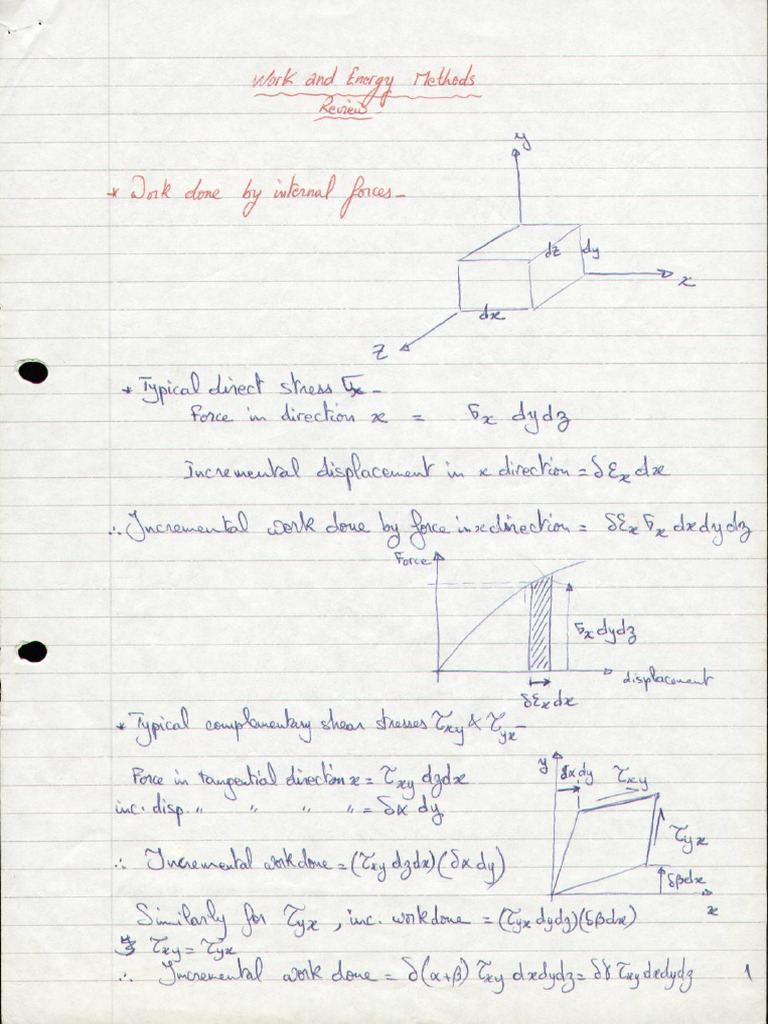 Work and Energy Methods
Review
* Work done by internal forces-
y
dz
dy
x
dx
z
* Typical direct stress σx-
Force in direction x = σx dydz
Incremental displacement in x direction = δεx dx
∴ Incremental work done by force in x direction = δεx σx dxdydz
Force
σx dydz
displacement
δεx dx
* Typical complementary shear stresses τxy & τyx-
y
δα dy
τxy
Force in tangential direction x = τxy dzdx
inc. disp. " " " " = δα dy
τyx
∴ Incremental work done = (τxy dzdx)(δα dy)
δβdx
x
Similarly for τyx, inc. work done = (τyx dydz)(δβdx)
τxy = τyx
∴ Incremental work done = δ(α+β) τxy dxdydz = δγ τxy dxdydz
1